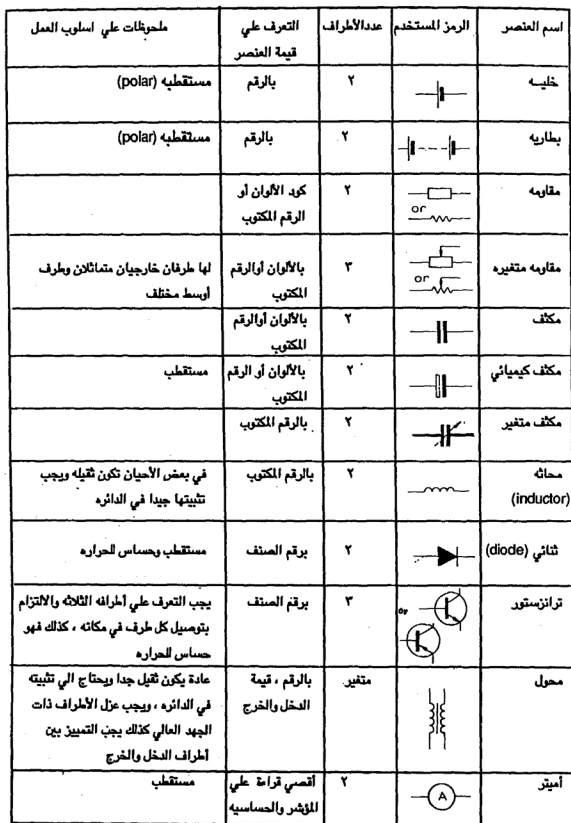 اسم العنصر
الرمز المستخدم
عددالأطراف
التعرف علي
قيمة العنصر
ملحوظات علي اسلوب العمل
خليه
٢
بالرقم
مستقطبه (polar)
بطاريه
٢
بالرقم
مستقطبه (polar)
مقاومه
or
٢
كود الألوان أو
الرقم المكتوب
مقاومه متغيره
or
٣
بالألوان أوالرقم
المكتوب
لها طرفان خارجيان متماثلان وطرف
أوسط مختلف
مكثف
٢
بالألوان أوالرقم
المكتوب
مكثف كيميائي
٢
بالألوان أو الرقم
المكتوب
مستقطب
مكثف متغير
٢
بالرقم المكتوب
محاثه
(inductor)
٢
بالرقم المكتوب
في بعض الأحيان تكون ثقيله ويجب
تثبيتها جيدا في الدائره
ثنائي (diode)
٢
برقم الصنف
مستقطب وحساس للحراره
ترانزستور
or
٣
برقم الصنف
يجب التعرف علي أطرافه الثلاثه والالتزام
بتوصيل كل طرف في مكانه ، كذلك فهو
حساس للحراره
محول
متغير
بالرقم ، قيمة
الدخل والخرج
عادة يكون ثقيل جدا ويحتاج الي تثبيته
في الدائره ، ويجب عزل الأطراف ذات
الجهد العالي كذلك يجب التمييز بين
أطراف الدخل والخرج
أميتر
A
٢
أقصي قراءة علي
المؤشر والحساسيه
مستقطب